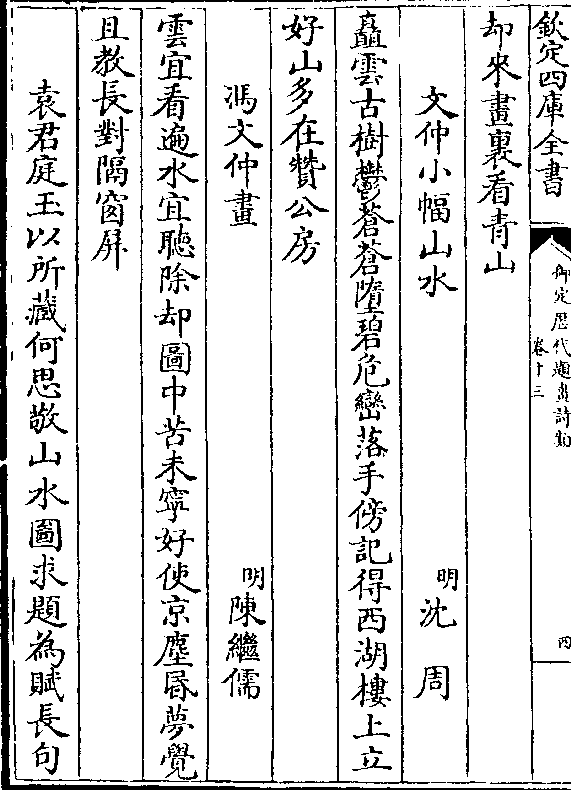 欽定四庫全書
御定歴代題畫詩類
卷十三
四
却來畫裏看青山
文仲小幅山水
明沈周
矗雲古樹鬱蒼蒼墮碧危巒落手傍記得西湖樓上立
好山多在贊公房
馮文仲畫
明陳繼儒
雲宜看遍水宜聽除却圖中苦未寧好使京塵昏夢覺
且教長對隔窗屏
袁君庭玉以所藏何思敬山水圖求題為賦長句